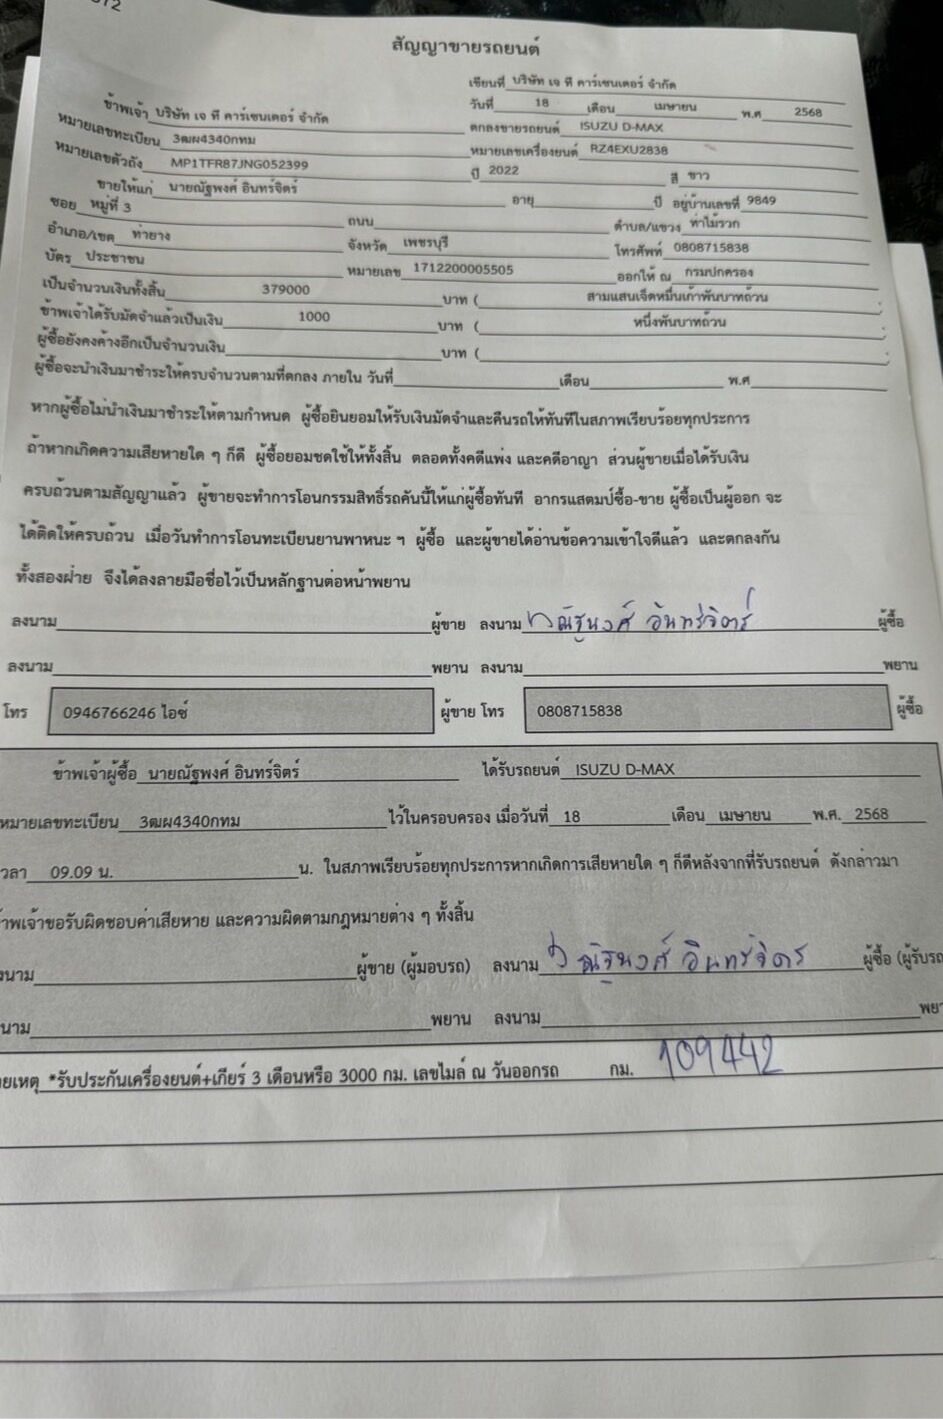 สัญญาขายรถยนต์
เขียนที่ บริษัท เจ ที คาร์เซนเตอร์ จำกัด
วันที่ 18 เดือน เมษายน พ.ศ 2568
ข้าพเจ้า บริษัท เจ ที คาร์เซนเตอร์ จำกัด ตกลงขายรถยนต์ ISUZU D-MAX
หมายเลขทะเบียน 3ฒผ4340กทม หมายเลขเครื่องยนต์ RZ4EXU2838
หมายเลขตัวถัง MP1TFR87JNG052399 ปี 2022 สี ขาว
ขายให้แก่ นายณัฐพงศ์ อินทร์จิตร์ อายุ ปี อยู่บ้านเลขที่ 9849
ซอย หมู่ที่ 3 ถนน ตำบล/แขวง ท่าไม้รวก
อำเภอ/เขต ท่ายาง จังหวัด เพชรบุรี โทรศัพท์ 0808715838
บัตร ประชาชน หมายเลข 1712200005505 ออกให้ ณ กรมปกครอง
เป็นจำนวนเงินทั้งสิ้น 379000 บาท ( สามแสนเจ็ดหมื่นเก้าพันบาทถ้วน
ข้าพเจ้าได้รับมัดจำแล้วเป็นเงิน 1000 บาท ( หนึ่งพันบาทถ้วน
ผู้ซื้อยังคงค้างอีกเป็นจำนวนเงิน บาท (
ผู้ซื้อจะนำเงินมาชำระให้ครบจำนวนตามที่ตกลง ภายใน วันที่ เดือน พ.ศ
หากผู้ซื้อไม่นำเงินมาชำระให้ตามกำหนด ผู้ซื้อยินยอมให้รับเงินมัดจำและคืนรถให้ทันทีในสภาพเรียบร้อยทุกประการ
ถ้าหากเกิดความเสียหายใด ๆ ก็ดี ผู้ซื้อยอมชดใช้ให้ทั้งสิ้น ตลอดทั้งคดีแพ่ง และคดีอาญา ส่วนผู้ขายเมื่อได้รับเงิน
ครบถ้วนตามสัญญาแล้ว ผู้ขายจะทำการโอนกรรมสิทธิ์รถคันนี้ให้แก่ผู้ซื้อทันที อากรแสตมป์ซื้อ-ขาย ผู้ซื้อเป็นผู้ออก จะ
ได้ติดให้ครบถ้วน เมื่อวันทำการโอนทะเบียนยานพาหนะ ฯ ผู้ซื้อ และผู้ขายได้อ่านข้อความเข้าใจดีแล้ว และตกลงกัน
ทั้งสองฝ่าย จึงได้ลงลายมือชื่อไว้เป็นหลักฐานต่อหน้าพยาน
ลงนาม ผู้ขาย ลงนาม ณัฐพงศ์ อินทร์จิตร์ ผู้ซื้อ
ลงนาม พยาน ลงนาม พยาน
โทร 0946766246 ไอซ์ ผู้ขาย โทร 0808715838 ผู้ซื้อ
ข้าพเจ้าผู้ซื้อ นายณัฐพงศ์ อินทร์จิตร์ ได้รับรถยนต์ ISUZU D-MAX
หมายเลขทะเบียน 3ฒผ4340กทม ไว้ในครอบครอง เมื่อวันที่ 18 เดือน เมษายน พ.ศ. 2568
วลา 09.09 น. น. ในสภาพเรียบร้อยทุกประการหากเกิดการเสียหายใด ๆ ก็ดีหลังจากที่รับรถยนต์ ดังกล่าวมา
าพเจ้าขอรับผิดชอบค่าเสียหาย และความผิดตามกฎหมายต่าง ๆ ทั้งสิ้น
งนาม ผู้ขาย (ผู้มอบรถ) ลงนาม ณัฐพงศ์ อินทร์จิตร ผู้ซื้อ (ผู้รับรถ
นาม พยาน ลงนาม พยา
ยเหตุ *รับประกันเครื่องยนต์+เกียร์ 3 เดือนหรือ 3000 กม. เลขไมล์ ณ วันออกรถ กม. 109442